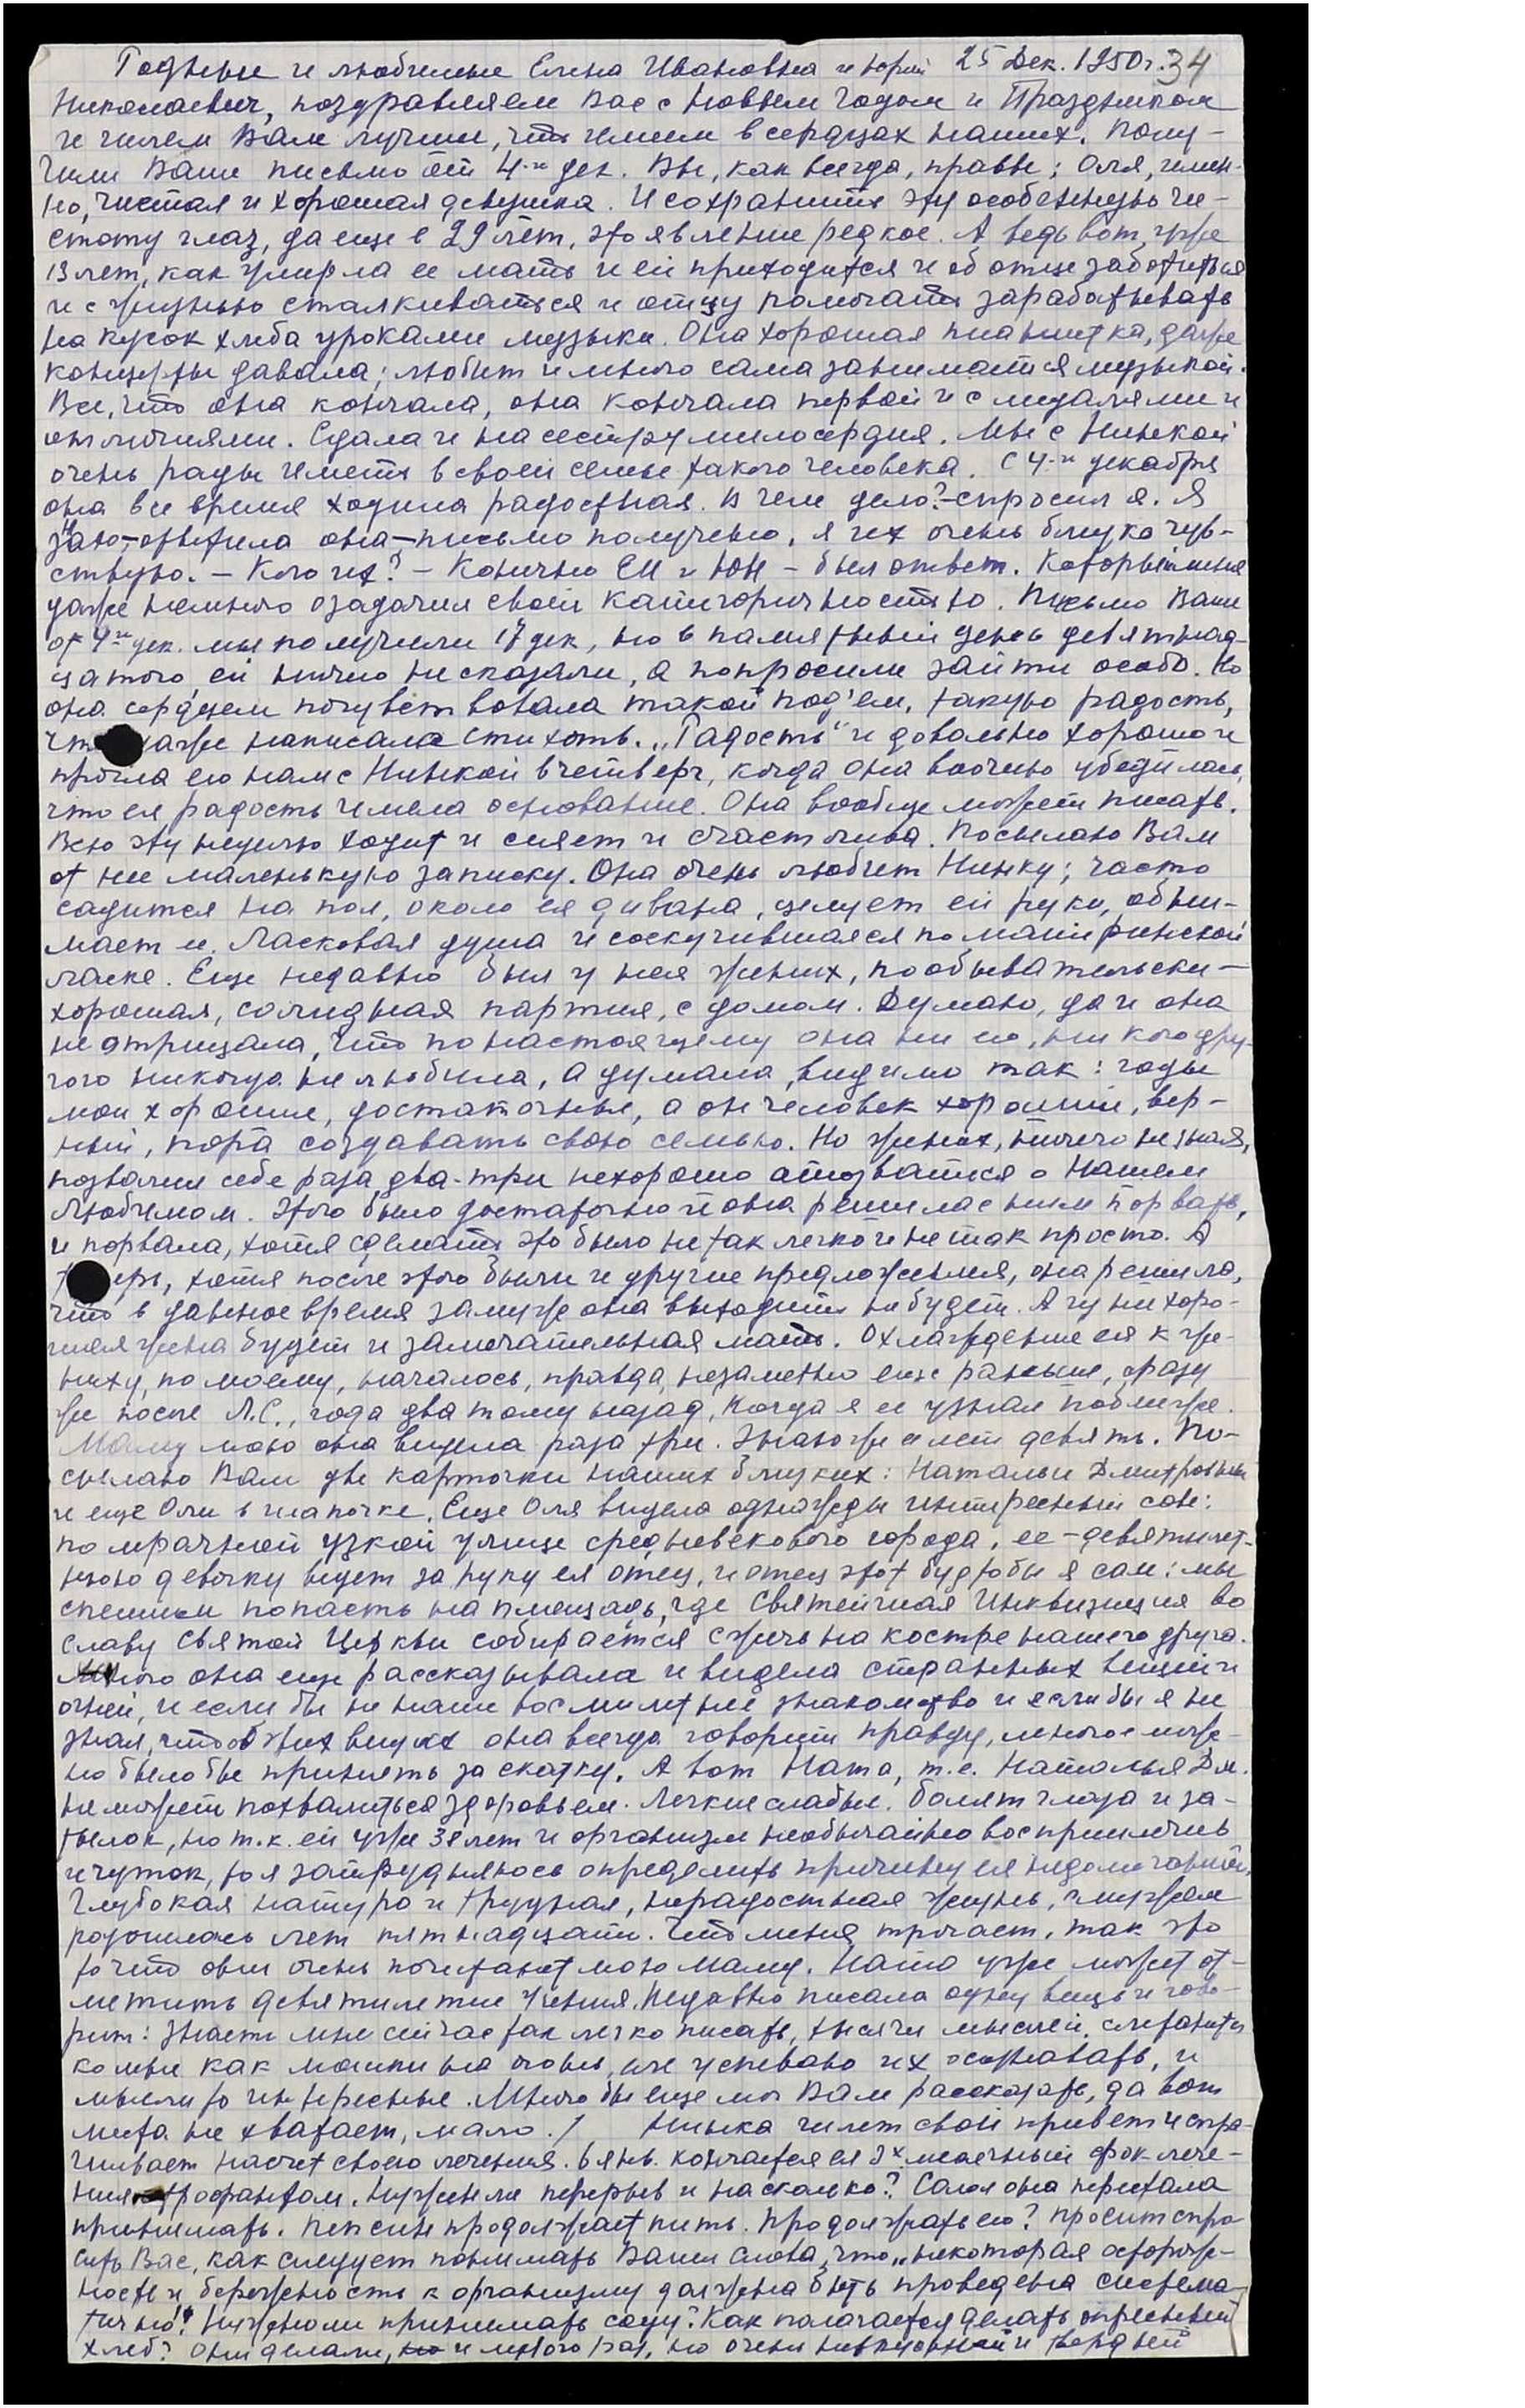 Родные и любимые Елена Ивановна и Юрий 25 Дек. 1950г. 34
Николаевич, поздравляем Вас с Новым Годом и Праздником
и шлем Вам лучшее, что имеем в сердцах наших. Полу-
чили Ваше письмо от 4-го дек. Вы, как всегда, правы; Оля, имен-
но, чистая и хорошая девушка. И сохранить эту особенную чи-
стоту глаз, да еще в 29 лет, это явление редкое. А ведь вот, уже
13 лет, как умерла ее мать и ей приходится и об отце заботиться
и с жизнью сталкиваться и отцу помогать зарабатывать
на кусок хлеба уроками музыки. Она хорошая пианистка, даже
концерты давала; любит и много сама занимается музыкой.
Все, что она кончала, она кончала первой и с медалями и
отличиями. Сдала и на сестру милосердия. Мы с Нинкой
очень рады иметь в своей семье такого человека. С 4-го декабря
она все время ходила радостная. В чем дело? - спросил я. Я
знаю, - ответила она - письмо получено, я их очень близко чув-
ствую. - Кого их? - Конечно ЕИ и ЮН - был ответ. Который меня
даже немного озадачил своей категоричностью. Письмо Ваше
от 4го дек. мы получили 17 дек, но в памятный день девятнад-
цатого, ей ничего не сказали, а попросили зайти особо. Но
она сердцем почувствовала такой под'ем, такую радость,
что даже написала стихотв. „Радость" и довольно хорошо и
прочла его нам с Нинкой в четверг, когда она воочию убедилась,
что ея радость имела основание. Она вообще может писать.
Всю эту неделю ходит и сияет и счастлива. Посылаю Вам
от нее маленькую записку. Она очень любит Нинку; часто
садится на пол, около ея дивана, целует ей руки, обни-
мает ее. Ласковая душа и соскучившаяся по материнской
ласке. Еще недавно был у нея жених, по обывательски -
хорошая, солидная партия, с домом. Думаю, да и она
не отрицала, что по настоящему она ни его, ни кого дру-
гого никогда не любила, а думала, видимо так: годы
мои хорошие, достаточные, а он человек хороший, вер-
ный, пора создавать свою семью. Но жених, ничего не зная,
позволил себе раза два-три нехорошо отозваться о Нашем
Любимом. Этого было достаточно и она решила с ним порвать,
и порвала, хотя сделать это было не так легко и не так просто. А
теперь, хотя после этого были и другие предложения, она решила,
что в данное время замуж она выходить не будет. А из нее хоро-
шая жена будет и замечательная мать. Охлаждение ея к же-
ниху, по моему, началось, правда, незаметно еще раньше, сразу
же после Л.С., года два тому назад, когда я ее узнал поближе.
Маму мою она видела раза три. Знаю же ее лет девять. По-
сылаю Вам две карточки наших близких: Натальи Дмитровны
и еще Оли в шапочке. Еще Оля видела однажды интересный сон:
по мрачной узкой улице средневекового города, ее - девятилет-
нюю девочку ведет за руку ея отец, и отец этот будто бы я сам: мы
спешим попасть на площадь, где Святейшая Инквизиция во
славу Святой Церкви собирается сжечь на костре нашего друга.
Много она еще рассказывала и видела странных вещей и
огней, и если бы не наше восмилетнее знакомство и если бы я не
знал, что в этих вещах она всегда говорит правду, многое мож-
но было бы принять за сказку. А вот Ната, т.е. Наталья Дм.
не может похвалиться здоровьем. Легкие слабые. болят глаза и за-
тылок, но т.к. ей уже 38 лет и организм необычайно восприимчив
и чуток, то я затрудняюсь определить причину ея недомоганий.
Глубокая натура и трудная, нерадостная жизнь, с мужем
разошлась лет пятнадцати. Что меня трогает, так это
то что они очень почитают мою Маму. Ната уже может от-
метить девятилетие Учения. Недавно писала одну вещь и гово-
рит: знаете мне сейчас так легко писать, тысячи мыслей, слетаются
ко мне как мошки на огонь, и не успеваю их осознавать, и
мысли то интересные. Много бы еще мог Вам рассказать, да вот
места не хватает, мало. / Нинка шлет свой привет и спра-
шивает насчет своего лечения. 6 янв. кончается ея 2х месячный срок лече-
ния строфантом. Нужен ли перерыв и насколько? Салол она перестала
принимать. Пепсин продолжает пить. Продолжать его? Просит спро-
сить Вас, как следует понимать Ваши слова, что „некоторая осторож-
ность и бережность к организму должна быть проведена система-
тично"? Нужно ли принимать соду? Как полагается делать опресный
хлеб? Они делали, и много раз, но очень невкусный и твердый